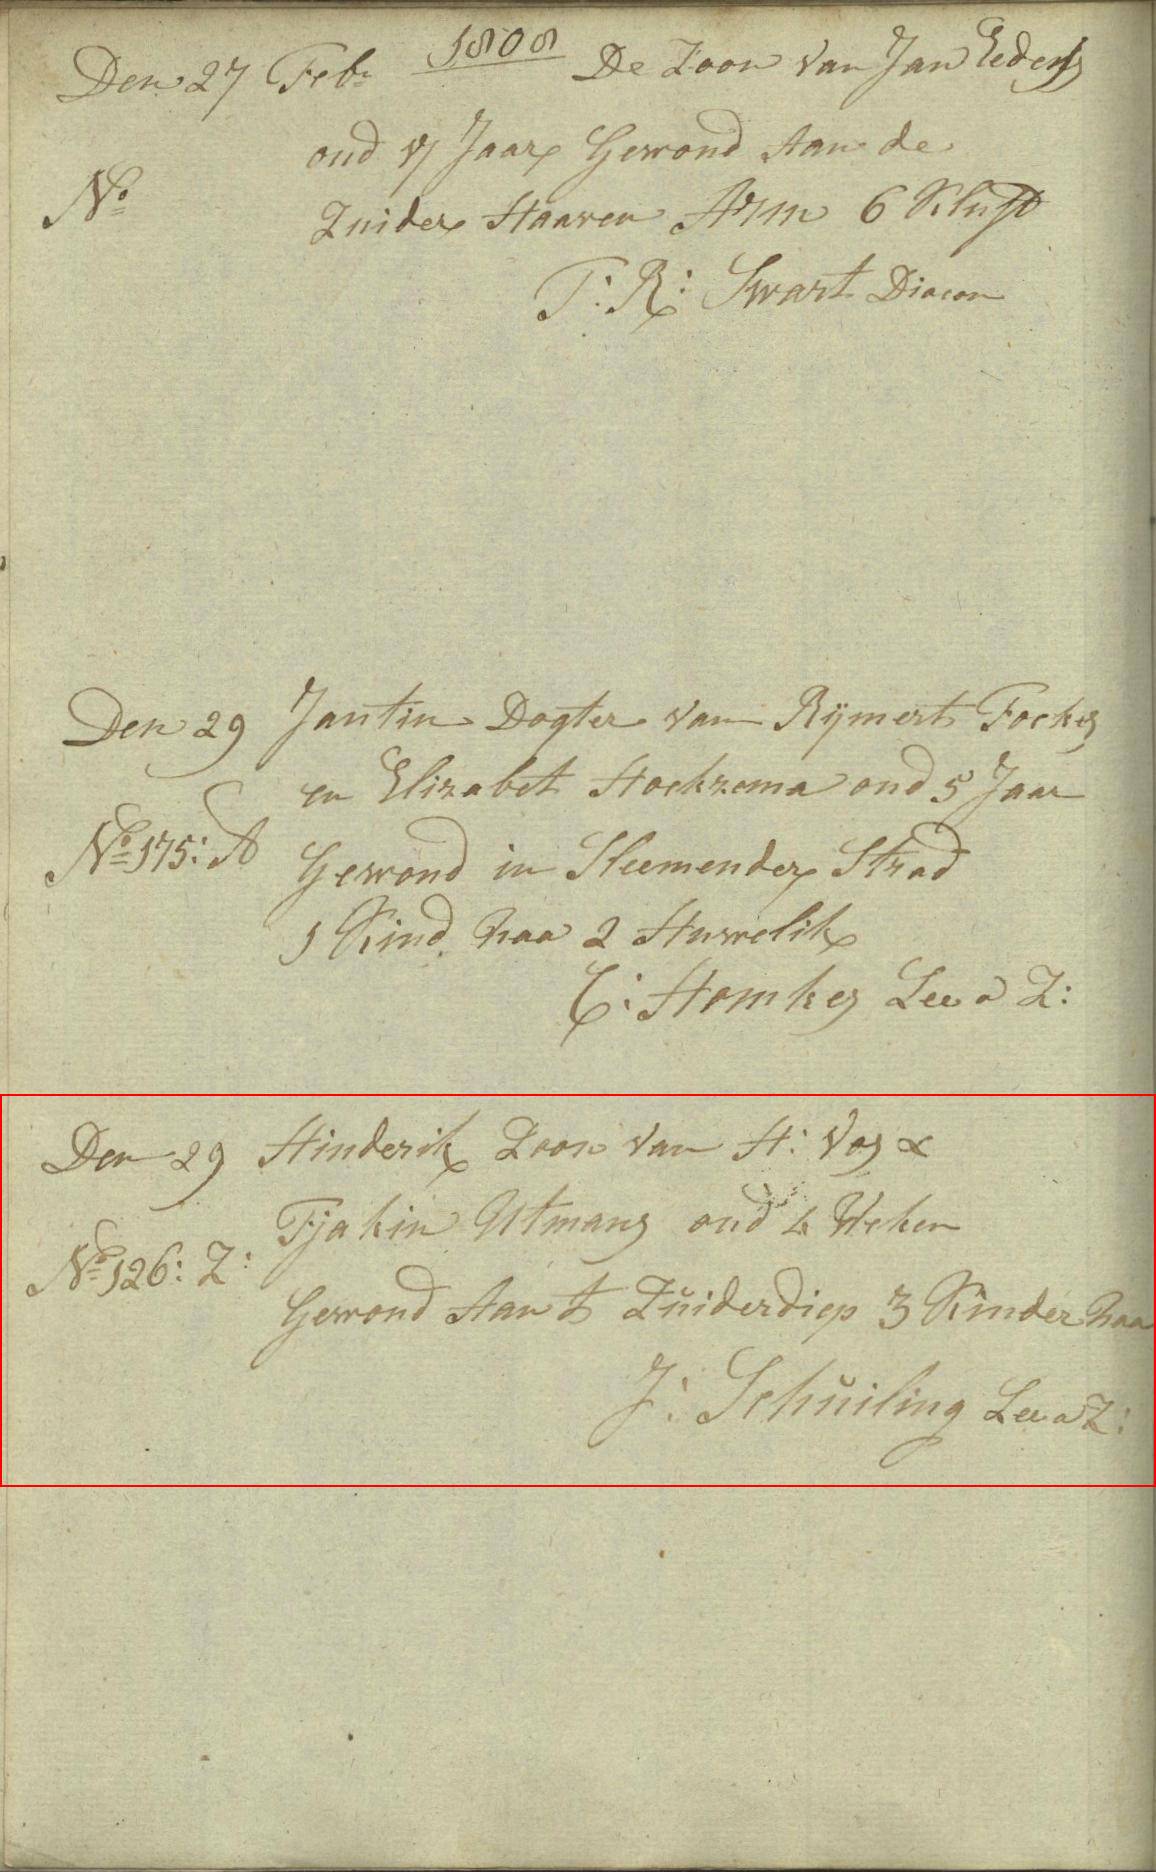 1808
Den 27 Feb: De Zoon van Jan Eedens
oud 17 Jaar Gewond Aan de
No Zuider Haaven Arm 6 Kluft
T: R: Swart Diacon
Den 29 Jantin Dogter van Rijmert Fockes
en Elizabet Hoekzema oud 5 Jaar
No 175: A Gewond in Heemender Strad
1 Kind Naa 2 Huwelik
C: Homkes Lee a Z:
Den 29 Hinderik Zoon van H: Vos &
Tjakin Utmans oud 4 Weken
No 126: Z: Gewond Aan t Zuiderdiep 3 Kinder Naa
J: Schuiling Lee a Z: